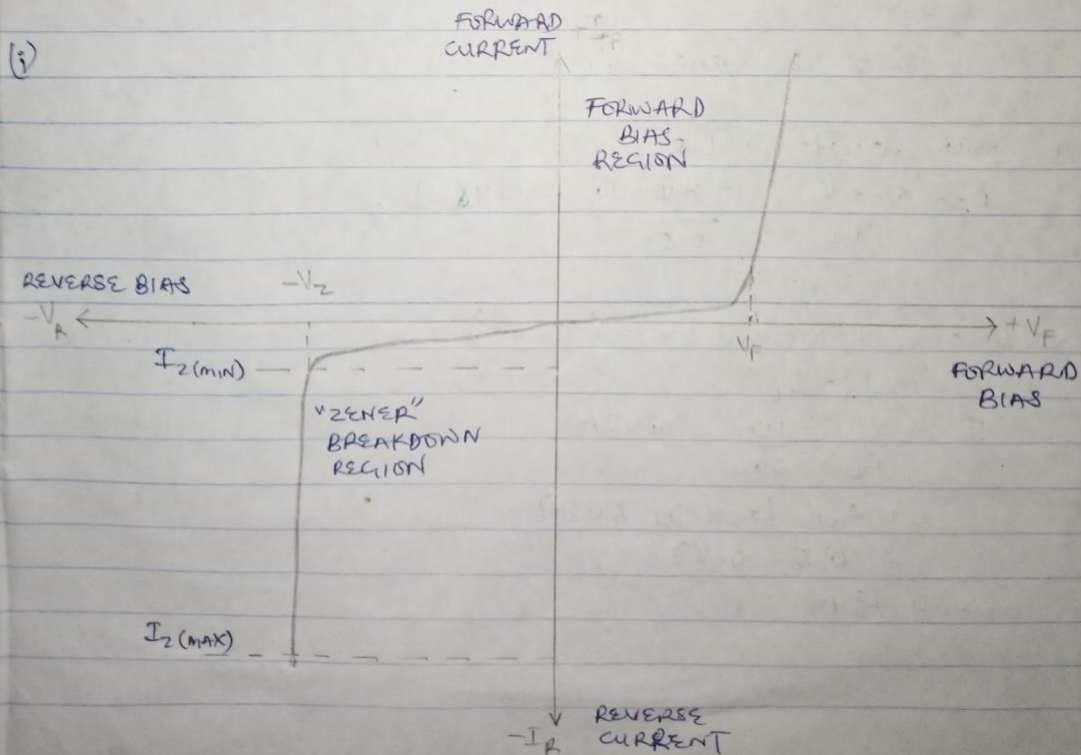 (i)
FORWARD
CURRENT
FORWARD
BIAS
REGION
REVERSE BIAS
-Vz
-VR
+VF
VF
Iz(MIN)
FORWARD
BIAS
"ZENER"
BREAKDOWN
REGION
Iz(MAX)
-IR
REVERSE
CURRENT